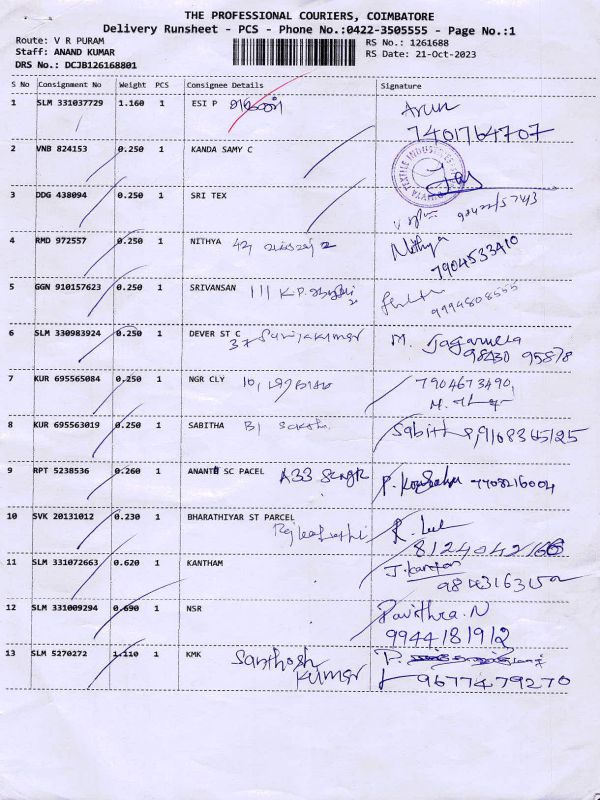 THE PROFESSIONAL COURIERS, COIMBATORE
Delivery Runsheet - PCS - Phone No.:0422-3505555 - Page No.:1
Route: V R PURAM
RS No.: 1261688
Staff: ANAND KUMAR
RS Date: 21-Oct-2023
DRS No.: DCJB126168801
S No Consignment No Weight PCS Consignee Details Signature
1 SLM 331037729 1.160 1 ESI P Arun
7401764707
2 VNB 824153 0.250 1 KANDA SAMY C
3 DDG 438094 0.250 1 SRI TEX
4 RMD 972557 0.250 1 NITHYA Nithya
7904533410
5 GGN 910157623 0.250 1 SRIVANSAN 111 K.P.
9994808555
6 SLM 330983924 0.250 1 DEVER ST C M.
37 98430 95878
7 KUR 695565084 0.250 1 NGR CLY 10, 7904673490,
8 KUR 695563019 0.250 1 SABITHA Sabitha 9168365125
9 RPT 5238536 0.260 1 ANANTH SC PACEL A33 7708216004
10 SVK 20131012 0.230 1 BHARATHIYAR ST PARCEL R.
8124042166
11 SLM 331072663 0.620 1 KANTHAM
12 SLM 331009294 0.690 1 NSR Pavithra.N
9944181912
13 SLM 5270272 1.110 1 KMK Santhosh Kumar P.
9677479270